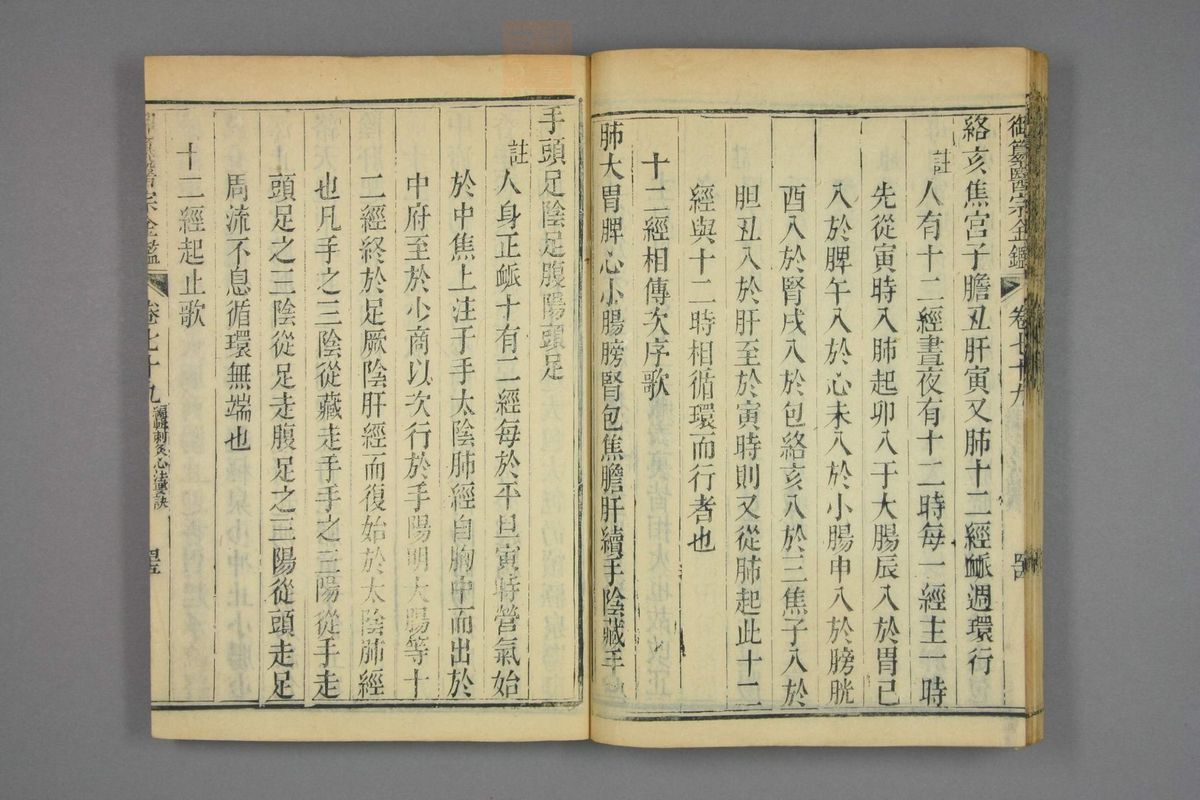 御纂醫宗金鑑 卷七十九
絡亥焦宮子膽丑肝寅又肺十二經衇週環行
註人有十二經晝夜有十二時每一經主一時
先從寅時入肺起卯入于大腸辰入於胃巳
入於脾午入於心未入於小腸申入於膀胱
酉入於腎戌入於包絡亥入於三焦子入於
胆丑入於肝至於寅時則又從肺起此十二
經與十二時相循環而行者也
十二經相傳次序歌
肺大胃脾心小腸膀腎包焦膽肝續手陰藏手
手頭足陰足腹陽頭足
註人身正衇十有二經每於平旦寅時營氣始
於中焦上注于手太陰肺經自胸中而出於
中府至於少商以次行於手陽明大陽等十
二經終於足厥陰肝經而復始於太陰肺經
也凡手之三陰從藏走手手之三陽從手走
頭足之三陰從足走腹足之三陽從頭走足
周流不息循環無端也
十二經起止歌
醫宗金鑑 卷七十九 編輯刺灸心法要訣